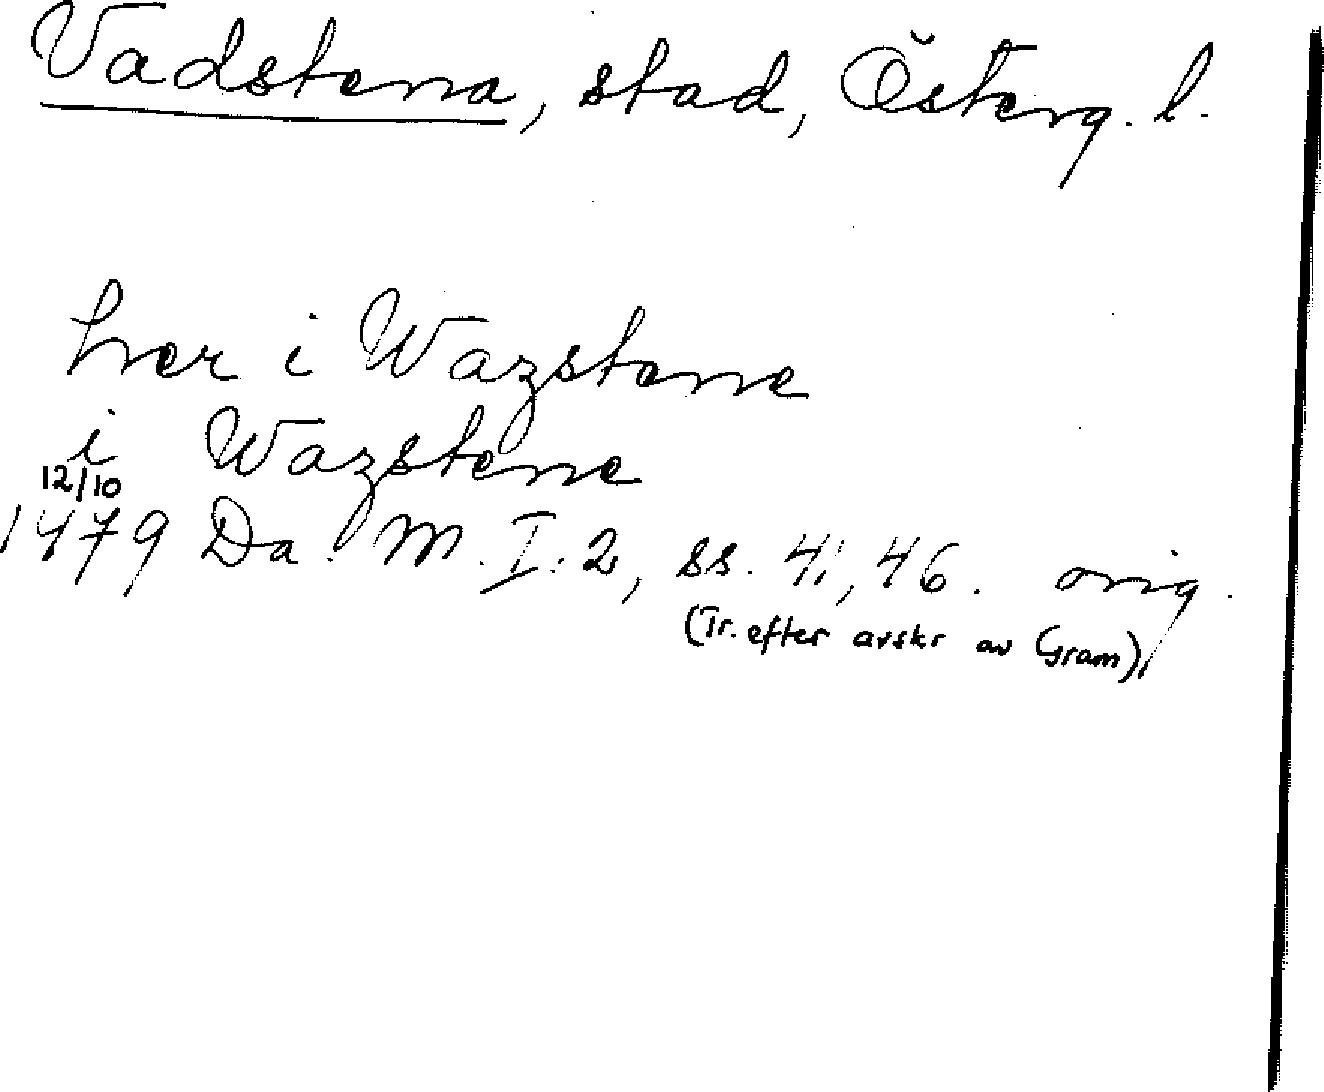 Vadstena, stad, Österg. l.
her i Wazstene
i Wazstene
12/10
1479 Da. M. I. 2, ss. 41, 46. orig.
(Tr. efter avskr av Gram)